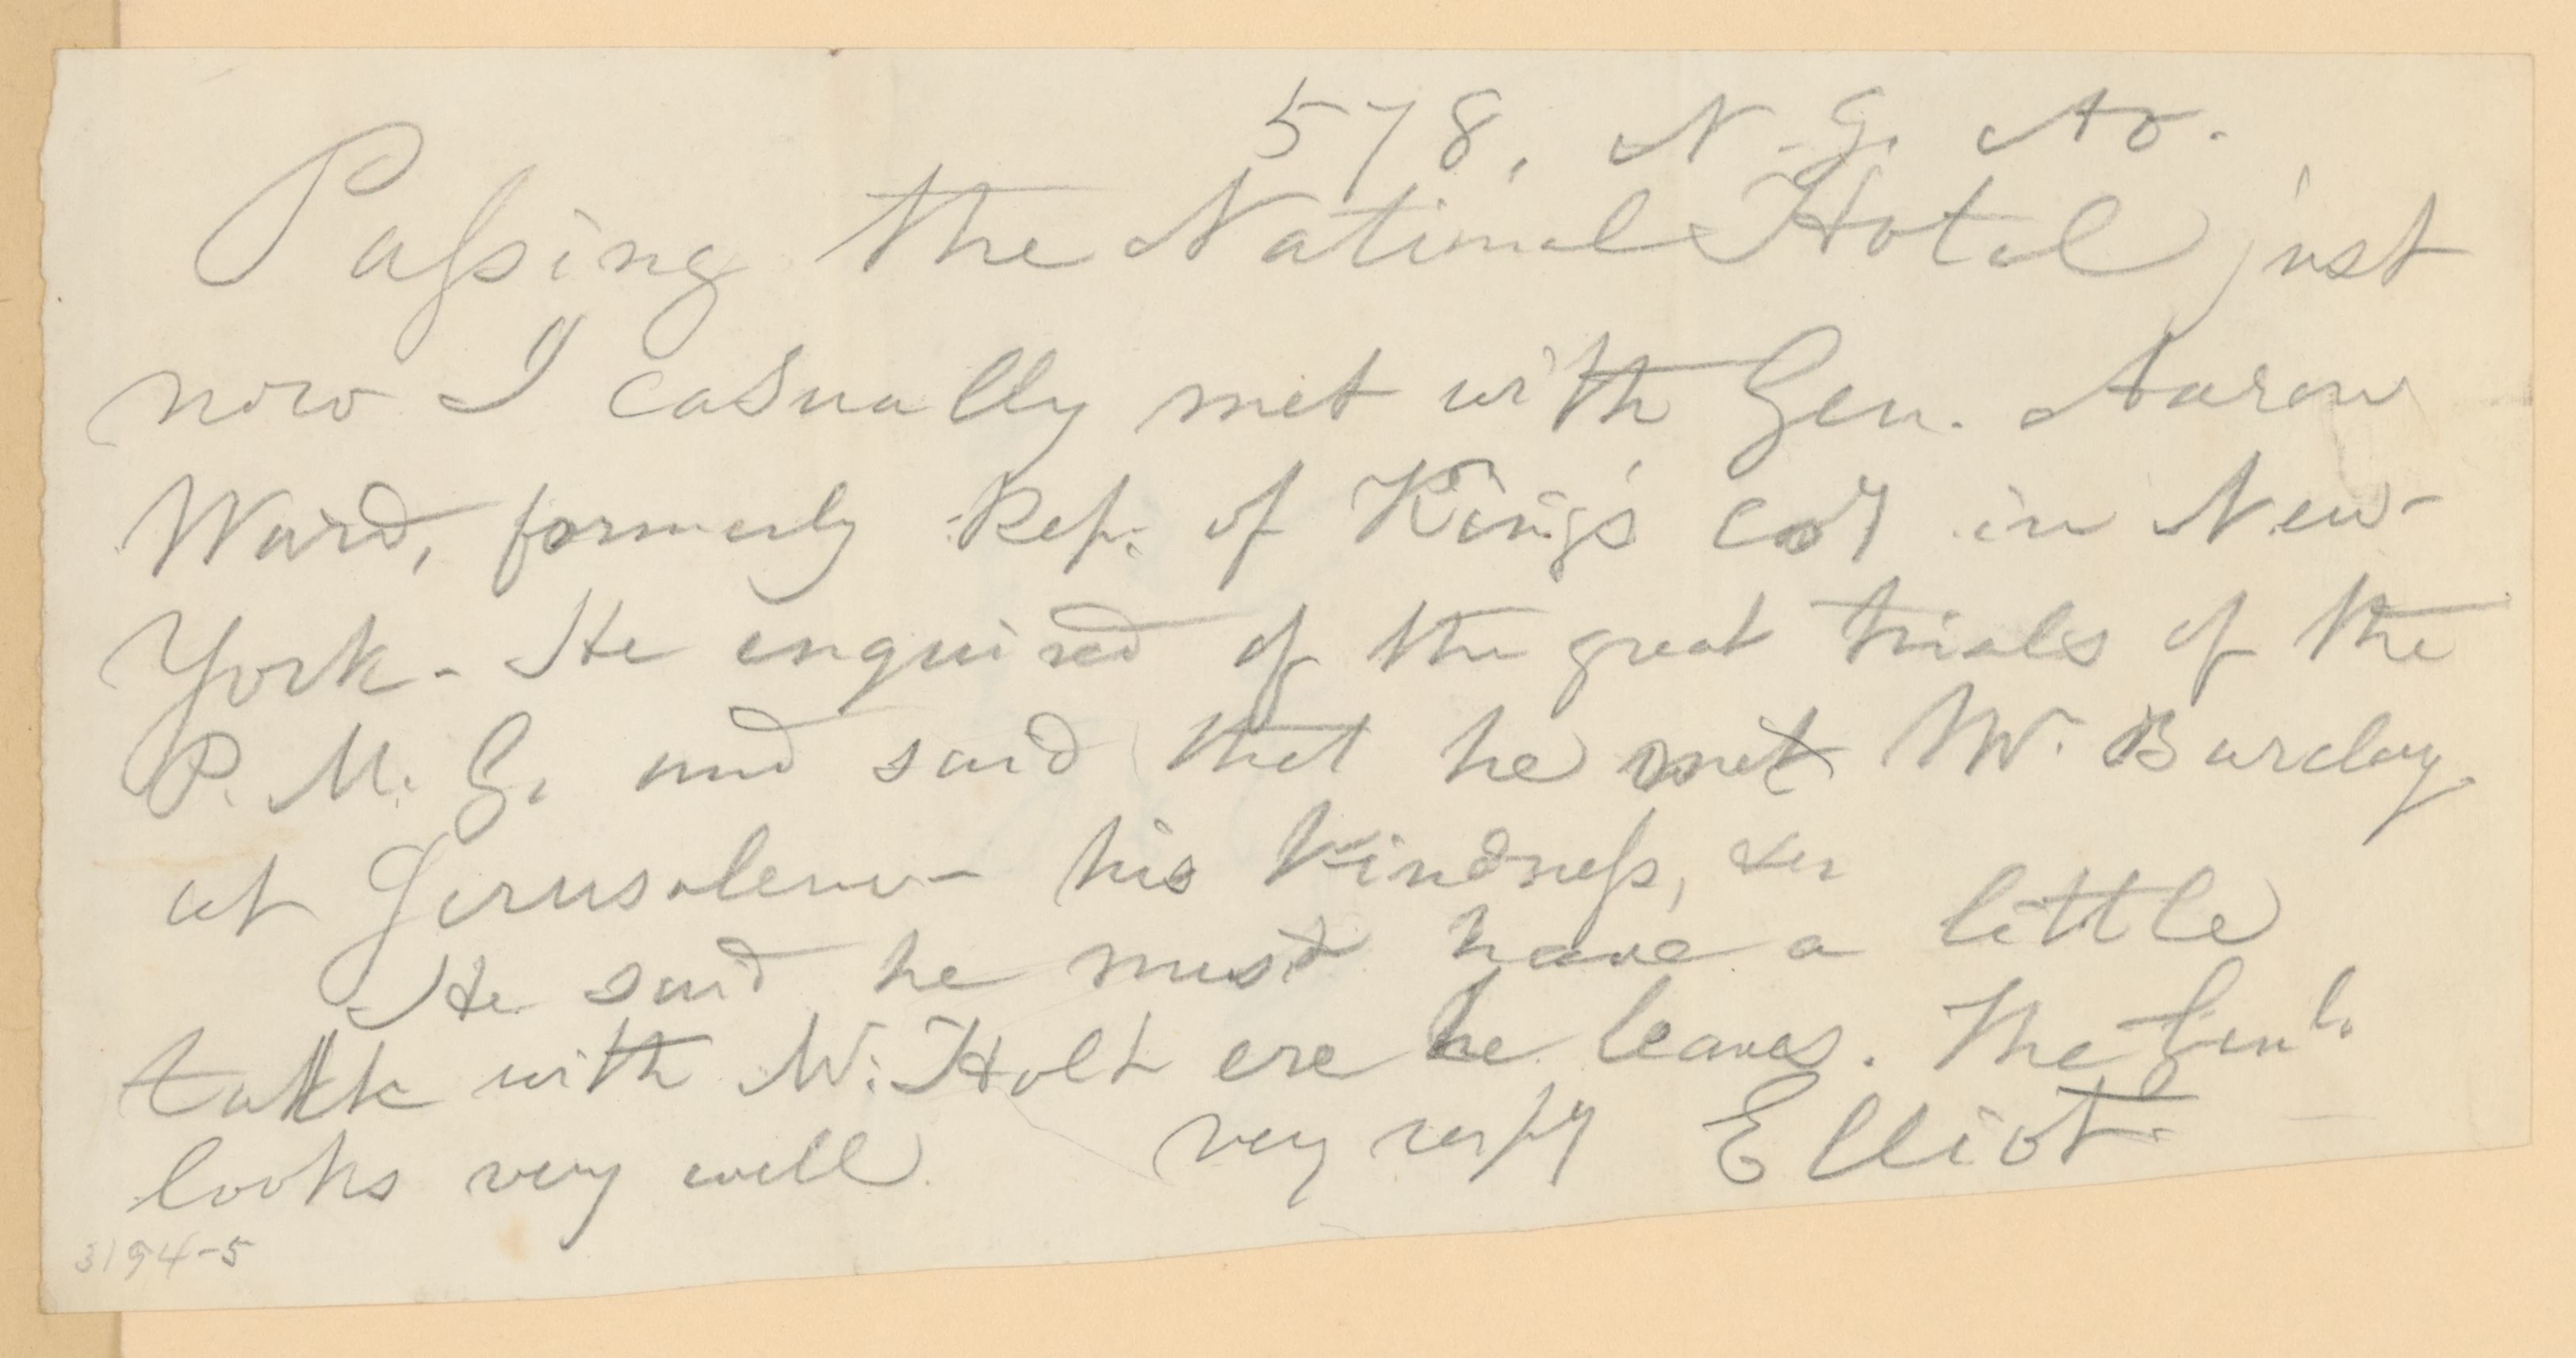 578, N. J. Av.
Passing the National Hotel just
now I casually met with Gen. Aaron
Ward, formerly Rep. of King's coy in New
York - He enquired of the great trials of the
P. M. G. and said that he met Mr. Barclay
at Jerusalem - his kindness,
He said he must have a little
talk with Mr. Holt ere he leaves. The Genl.
looks very well very respy Elliot
3194-5